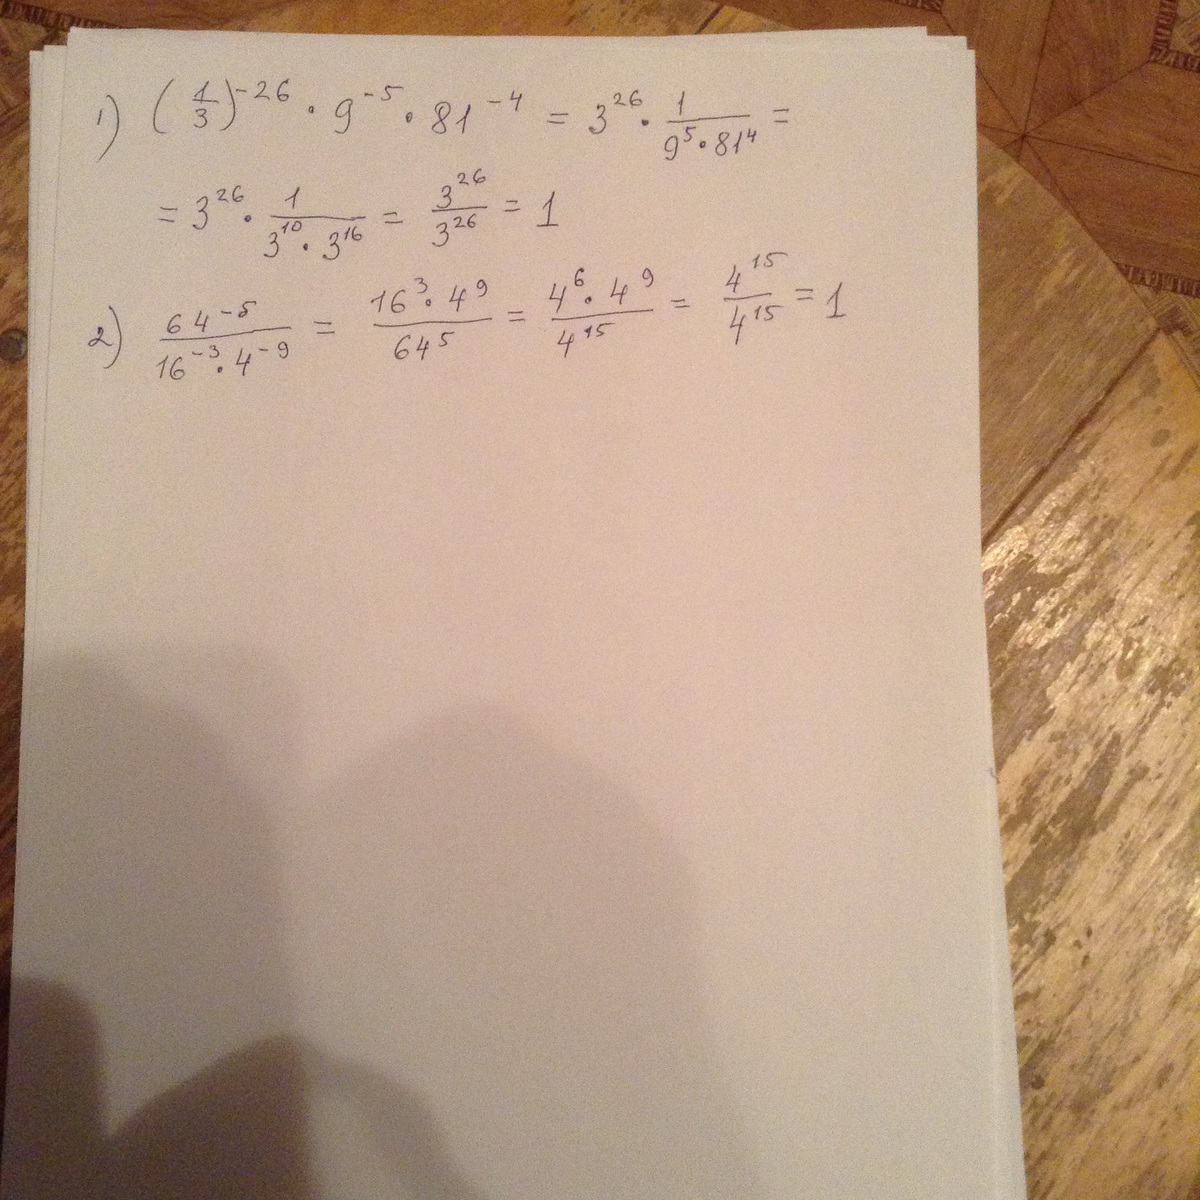 1) (1/3)^-26 · 9^-5 · 81^-4 = 3^26 · 1/(9^5 · 81^4) =
= 3^26 · 1/(3^10 · 3^16) = 3^26/3^26 = 1
2) 64^-5/(16^-3 · 4^-9) = (16^3 · 4^9)/64^5 = (4^6 · 4^9)/4^15 = 4^15/4^15 = 1